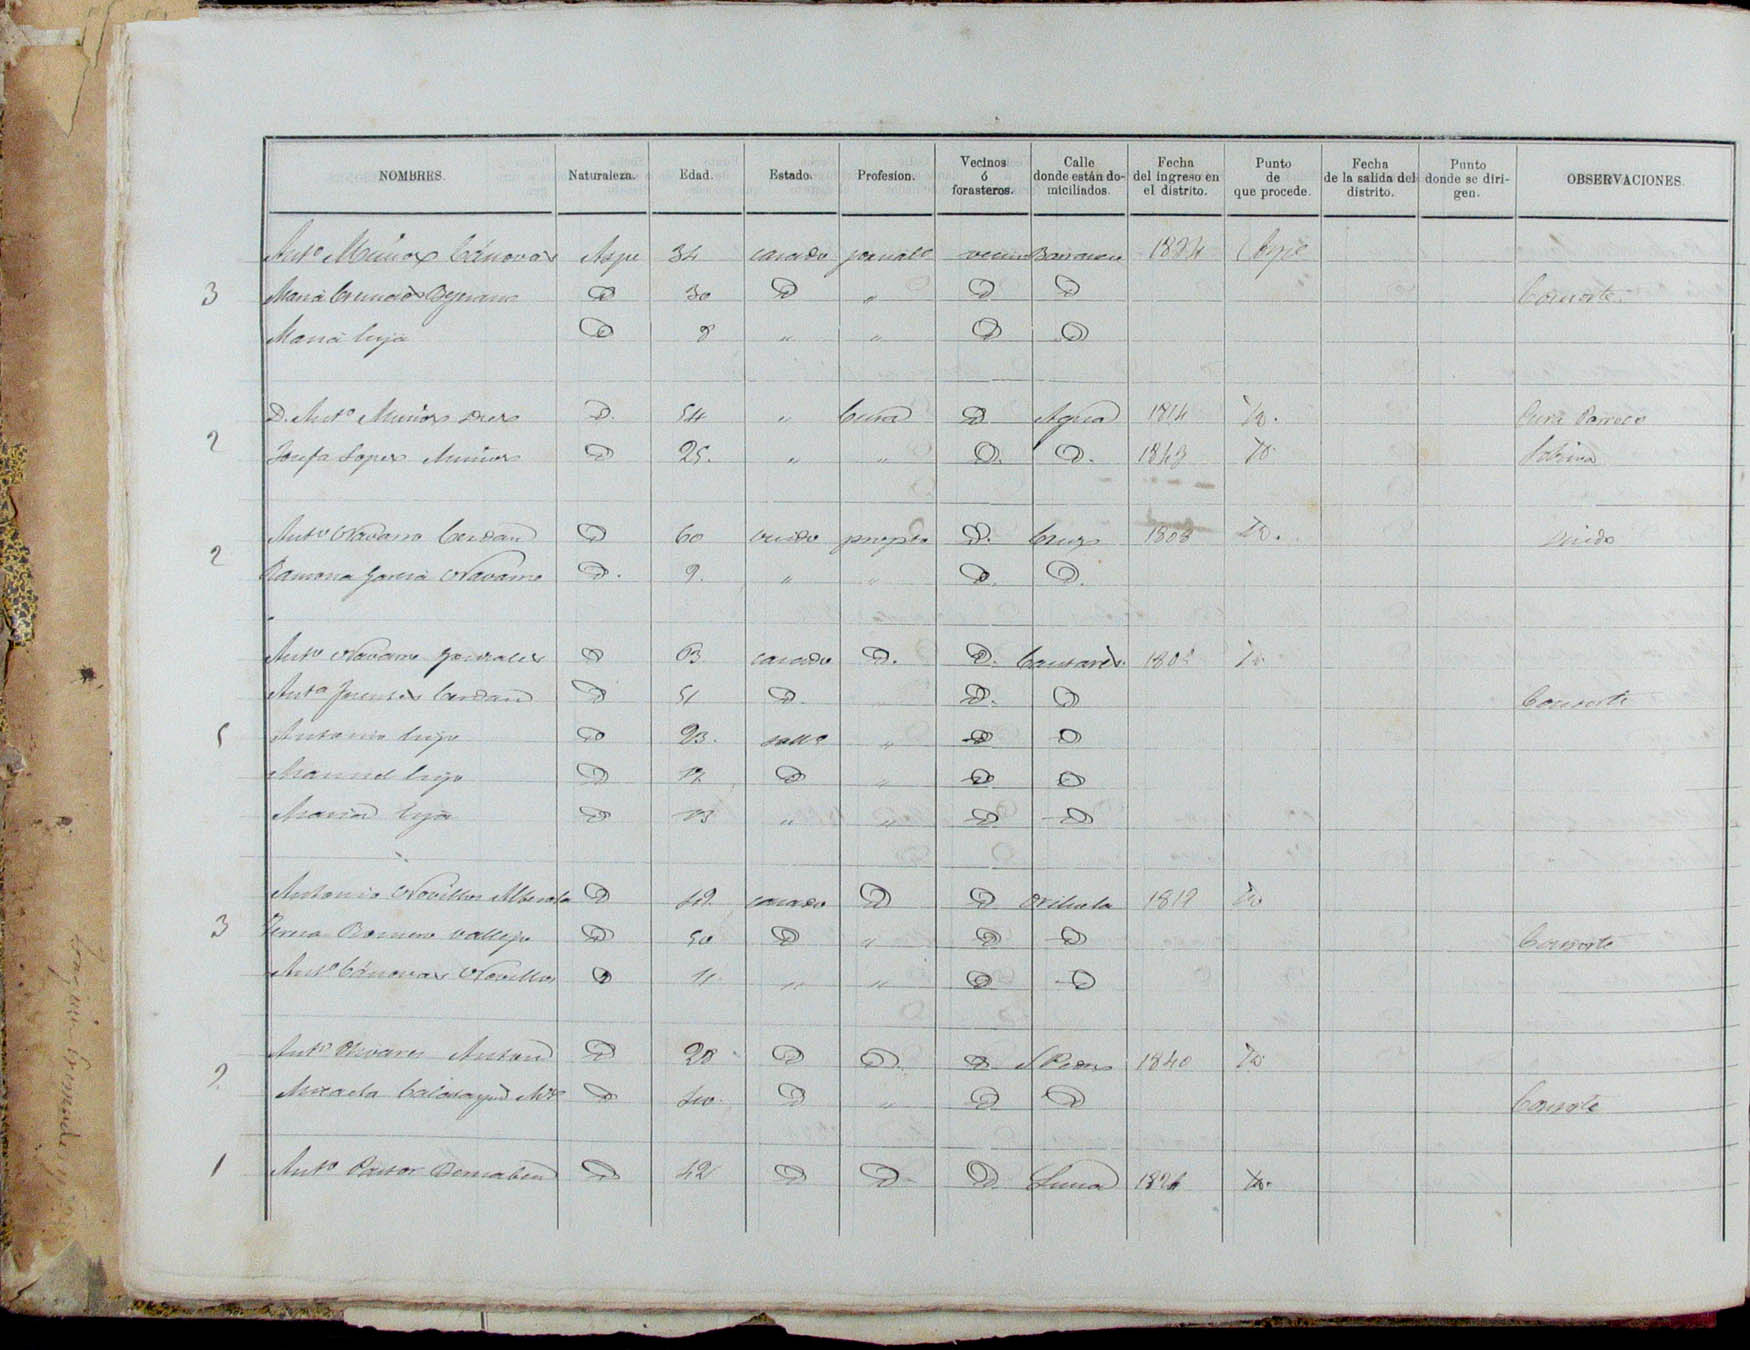 NOMBRES. Naturaleza. Edad. Estado. Profesion. Vecinos ó forasteros. Calle donde están domiciliados. Fecha del ingreso en el distrito. Punto de que procede. Fecha de la salida del distrito. Punto donde se dirigen. OBSERVACIONES.
Antº Muñoz Cánovas Aspe 34 casado jornalº vecino Barranco 1824 Aspe
3 Maria D 30 D „ D D Consorte
Maria hija D 8 „ „ D D
D. Antº Muñoz D. 54 „ Cura D Agua 1814 Yd. Cura Parroco
2 Josefa Lopez Muñoz D 25. „ „ D. D. 1843 Yd Sobrina
Antº Navarro Cerdan D 60 viudo propio D. Cruz 1808 Yd. viudo
2 Ramona Garcia Navarro D. 9. „ „ D. D.
Antº Navarro Gonzalez D 63 casado D. D. 180 Yd
Antª Cerdan D 51 D. „ D. D Consorte
5 Antonio hijo D 23. soltº „ D D
Manuel hijo D 12 D „ D D
Maria hija D 13 „ „ D D
Antonio Novillos Alberola D 49 casado D D Orihuela 1819 Yd
3 Teresa Romero Vallejo D 50 D „ D D Consorte
Antº Cánovas Novillos D 11 „ „ D D
Antº Olivares Anton D 28 D D. D S Pedro 1840 Yd
2 Micaela Calatayud D 40. D „ D D Consorte
1 Antº Pastor Bernabeu D 42 D D D Luna 1826 Yd.